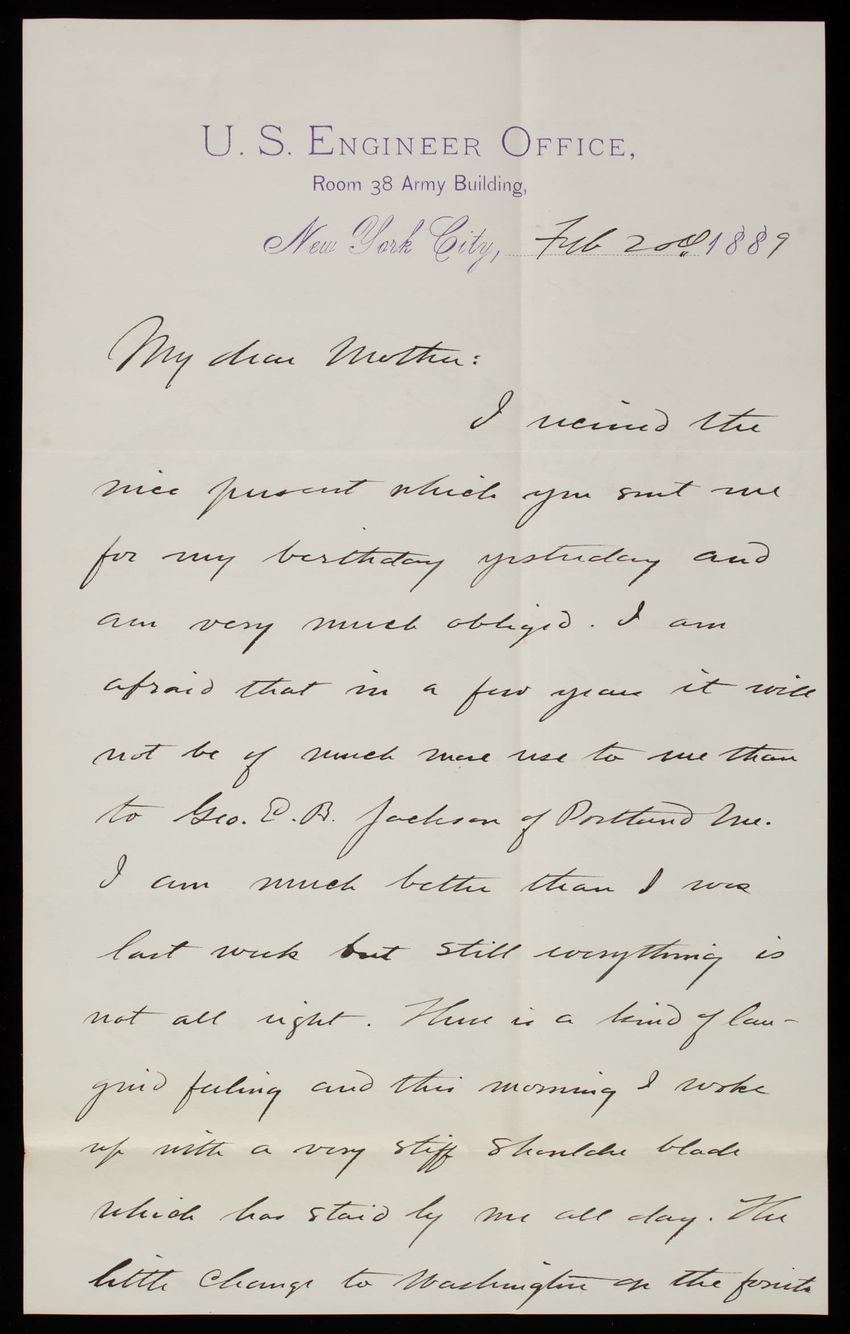 U. S. ENGINEER OFFICE,
Room 38 Army Building,
New York City, Feb 20d, 1889
My dear Mother:
I received the
nice present which you sent me
for my birthday yesterday and
am very much obliged. I am
afraid that in a few years it will
not be of much more use to me than
to Geo. E. B. Jackson of Portland Me.
I am much better than I was
last week but still everything is
not all right. There is a kind of lan-
guid feeling and this morning I woke
up with a very stiff shoulder blade
which has staid by me all day. The
little change to Washington on the